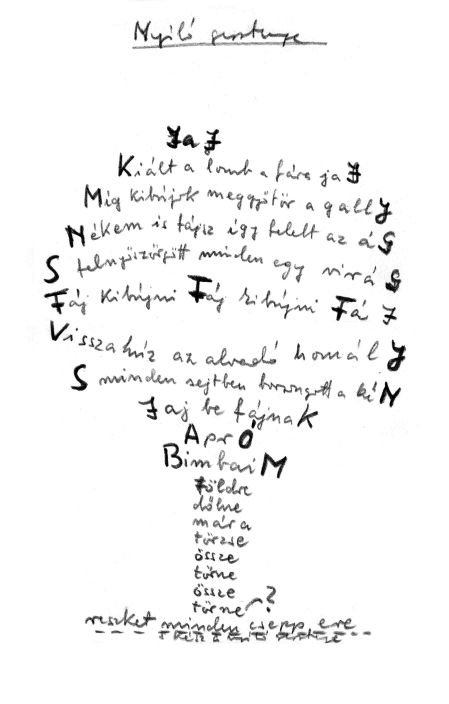 Nyíló gesztenye
JaJ
Kiált a lomb a fára jaJ
Míg kibújok meggyötör a gallY
Nékem is fájsz így felelt az áG
S felnyöszörgött minden egy viráG
Fáj kibújni Fáj kibújni FáJ
Visszahúz az alvadó homálY
S minden sejtben borzongott a kíN
Jaj be fájnaK
AprÓ
BimbaiM
földre
dőlne
mára
törzse
össze
törne
össze
törne ?
reszket minden csepp ere